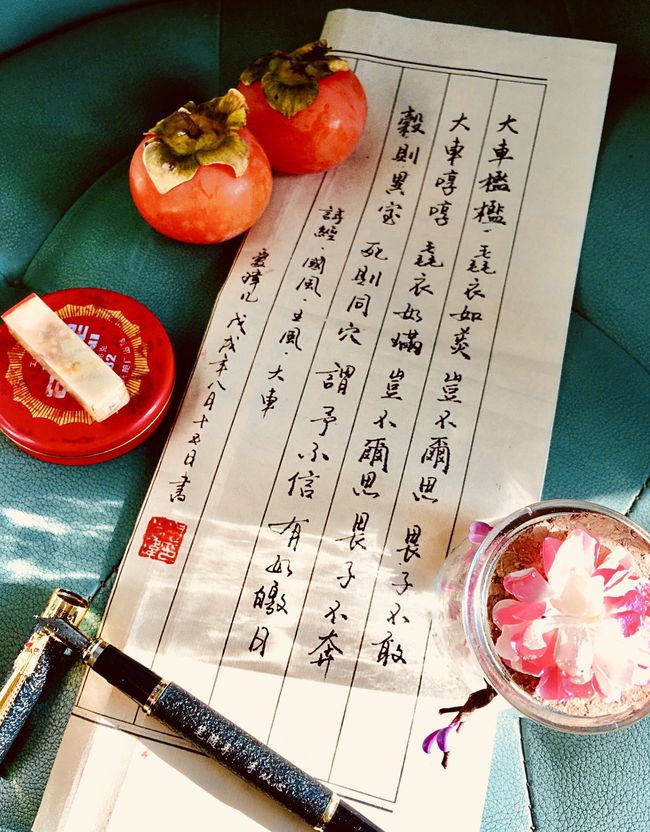 大車檻檻，毳衣如菼 豈不爾思 畏子不敢
大車啍啍 毳衣如璊 豈不爾思 畏子不奔
穀則異室 死則同穴 謂予不信 有如皦日
詩經·國風·王風·大車
戊戌年八月十五日書